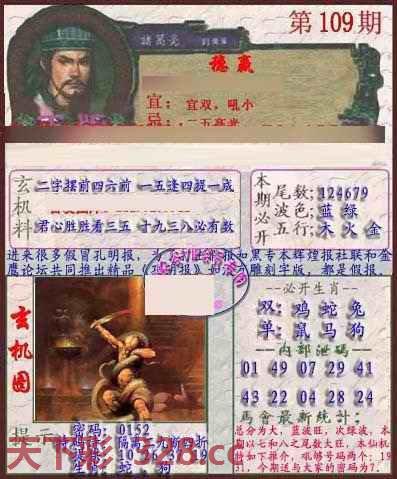 第109期
諸葛亮
穩贏
宜：宜双，吼小
忌：二五高光
玄机料
二字摆前四六前 一五逢四提一成
君心胜胜看三五 十九三八必有数
本期必开
尾数;124679
波色;蓝 绿
五行;木 火 金
进来很多假冒孔明报，为了打击假报如黑专本辉煌报社联和金
鹰论坛共同推出精品《孔明报》如没有雕刻字版，都是假报，
玄机图
必开生肖
双: 鸡 蛇 兔
单: 鼠 马 狗
内部泄码
01 49 07 29 41
43 22 04 28 24
馬會最新統計:
总分为大，蓝波旺，次绿波，本
期以七和八之尾数大旺，本仙机
特如下推介，吼够号码两个：19
31，今期送与大家的密码为7.
提示
密码: 0152
天下彩 328.cc